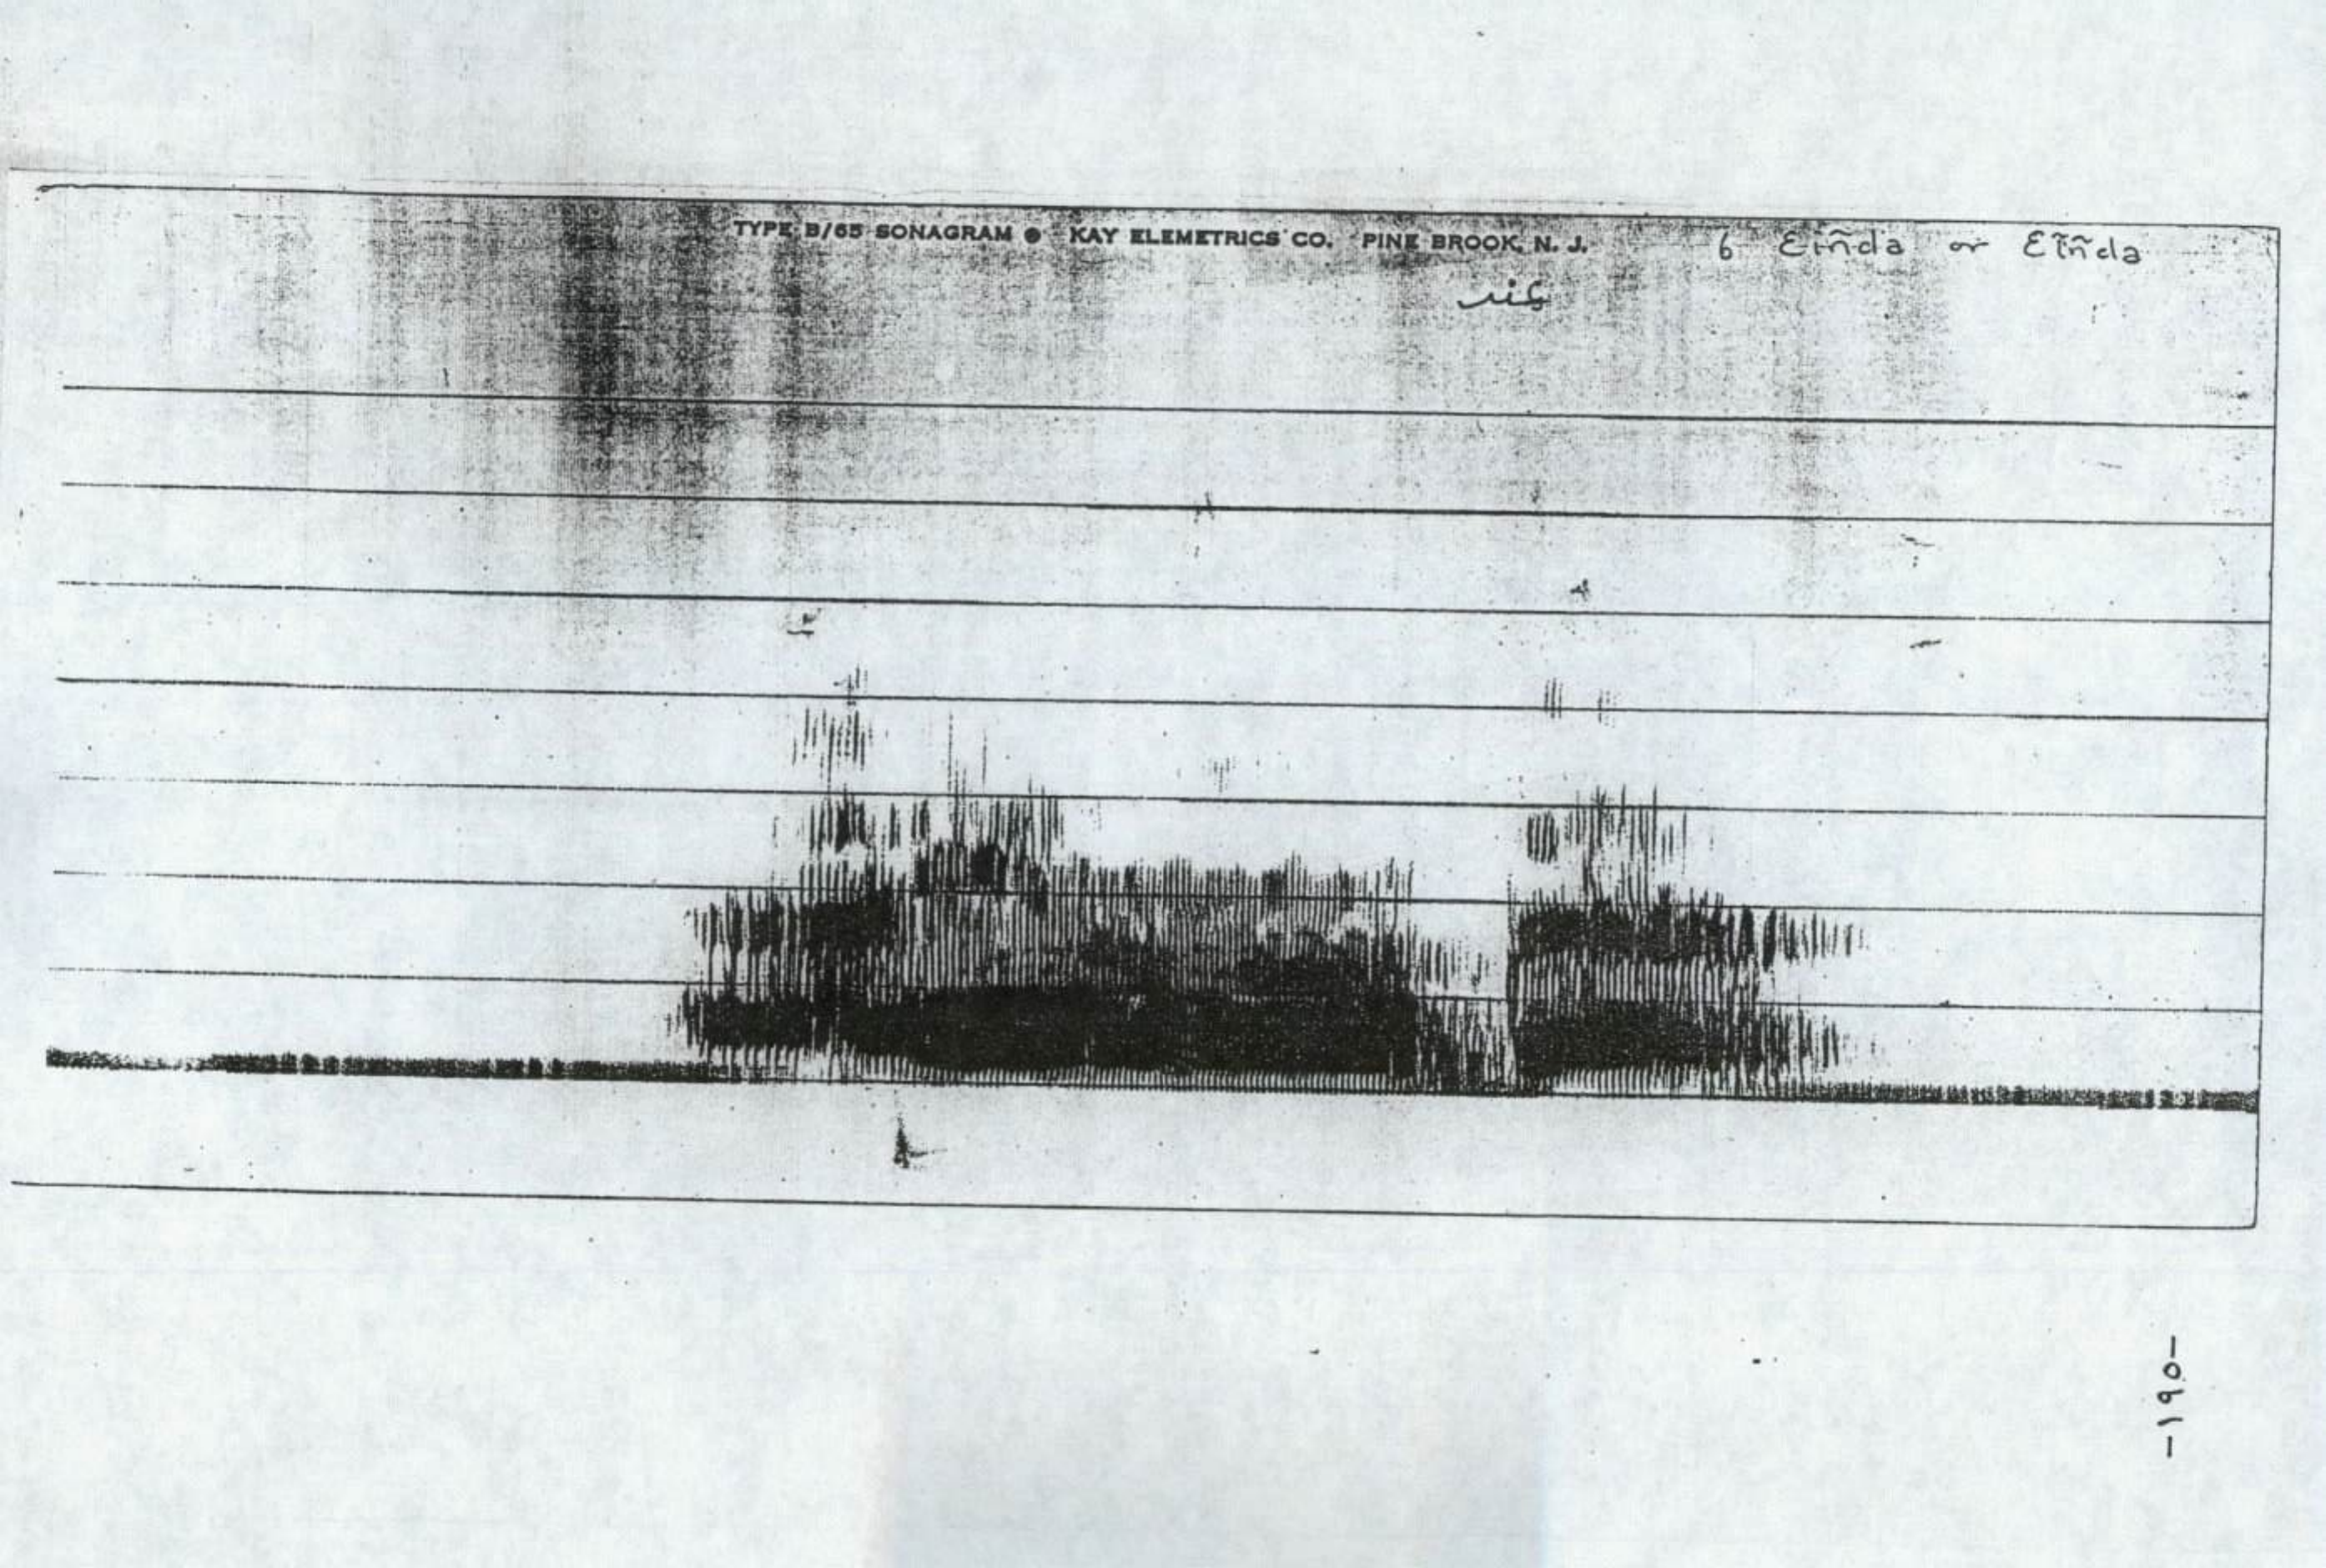 TYPE B/65 SONAGRAM ● KAY ELEMETRICS CO. PINE BROOK, N. J. 6 Eiñda or Eĩñda
عند
-١٩٥-